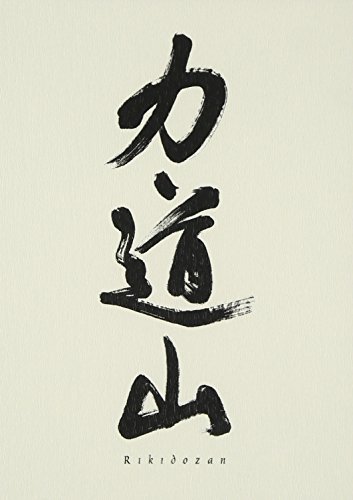 力道山
Rikidozan